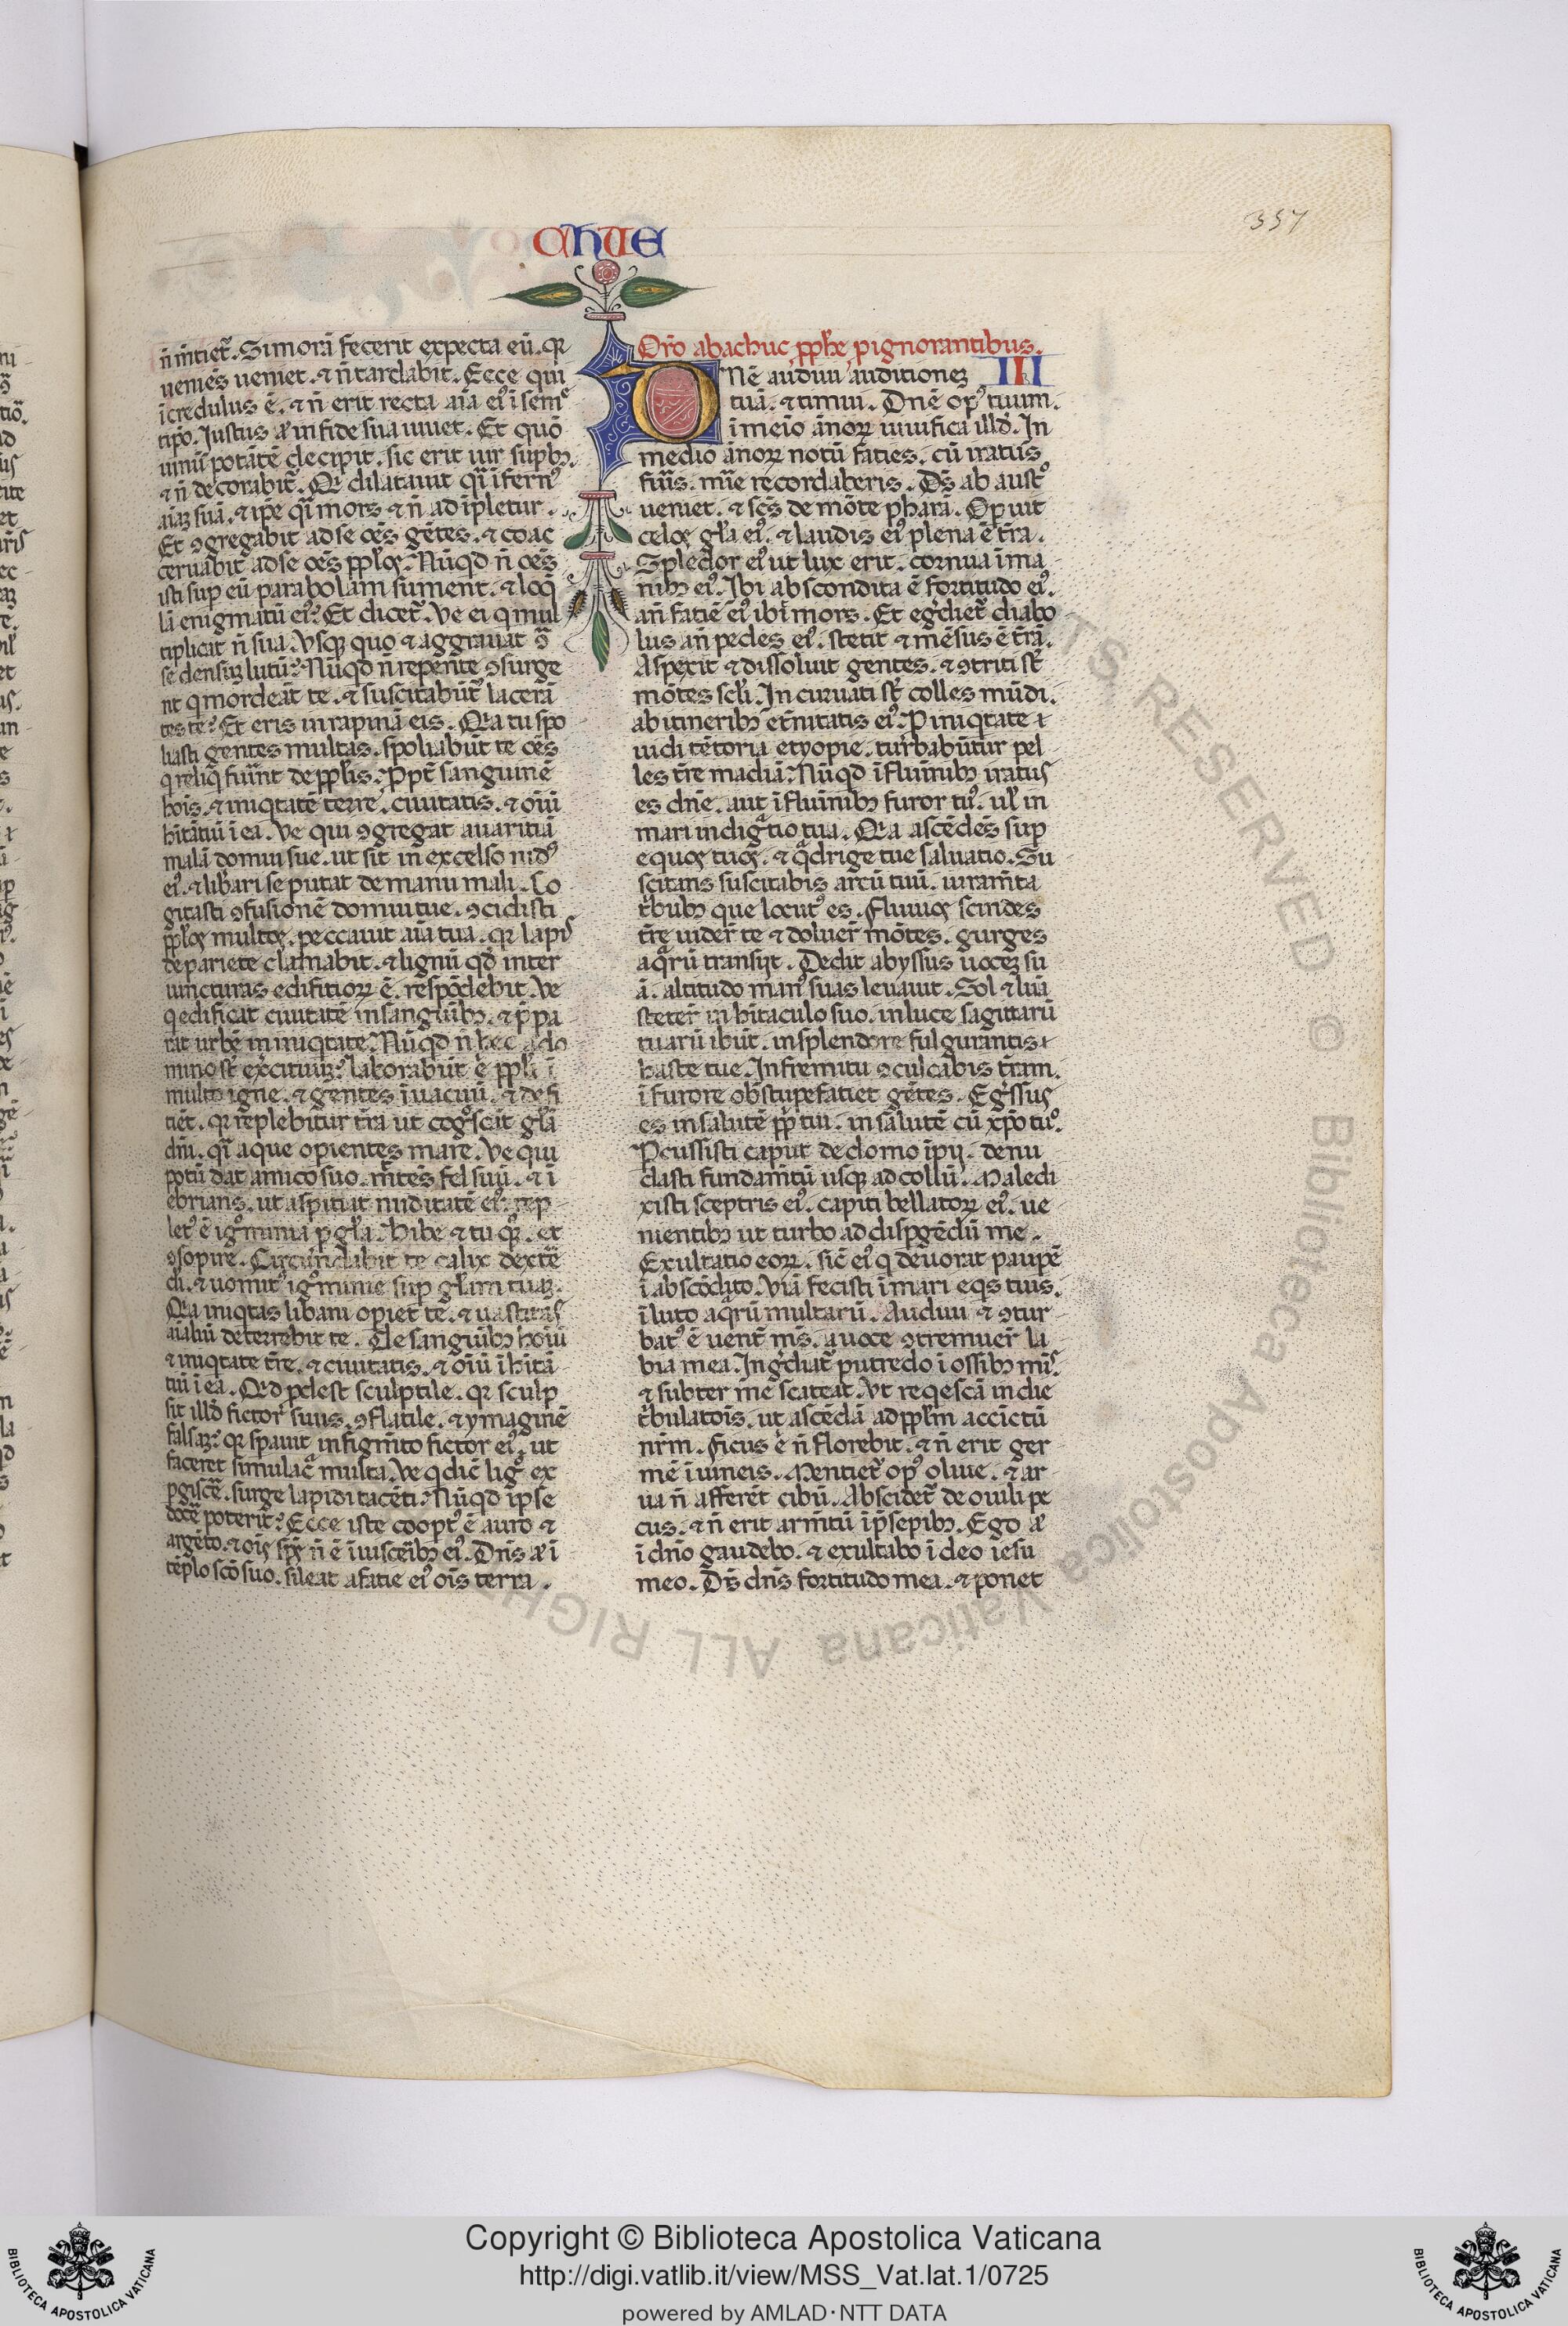 357
AHUE
n̄ m̄tiet᷑. Si morā fecerit expecta eū. qr
ueniēs ueniet. ⁊ n̄ tardabit. Ecce qui
īcredulus ē. ⁊ n̄ erit recta aīa eiꝰ ī sem̄e
tip̄o. Justus āt in fide sua uiuet. Et quō
uinū potātē decipit. sic erit uir supbꝰ.
⁊ n̄ decorabit᷑. Qr dilatauit q̄i ifernꝰ
aīaꝫ suā. ⁊ ip̄e q̄i mors ⁊ n̄ adīpletur.
Et ꝯgregabit ad se oēs gētes. ⁊ coac
ceruabit ad se oēs pp̄los. Nūqd n̄ oēs
isti sup eū parabolam sument. ⁊ loq̄
lā enigmatū eiꝰ? Et dicet᷑. Ve ei q mul
tiplicat n̄ sua. Vsqꝫ quo ⁊ aggrauat ꝯ̄
se densuꝫ lutū? Nūqd n̄ repente ꝯsurge
nt q mordeāt te. ⁊ suscitabūt᷑ lacerā
tes te? Et eris in rapinā eis. Qia tu spo
liasti gentes multas. spoliabūt te oēs
q reliq fuīnt de pp̄lis. Ppt᷑ sanguinē
hoīs. ⁊ iniqtatē terre. ciuitatis. ⁊ oīū
hītātiū ī ea. Ve qui ꝯgregat auaritiā
malā domui sue. ut sit in excelso nidꝰ
eiꝰ. ⁊ lib̄ari se putat de manu mali. Co
gitasti ꝯfusionē domui tue. ꝯcidisti
pp̄los multos. peccauit aīa tua. qr lapis
de pariete clamabit. ⁊ lignū qd̄ inter
iuncturas edifitioꝝ ē. respōdebit. Ve
q edificat ciuitatē in sanguībꝫ. ⁊ p̄pa
rat urbē in iniqtate. Nūqd n̄ hec a do
mino st̄ exercituuꝫ? laborabūt ē pp̄li ī
multo igne. ⁊ gentes ī uacuū. ⁊ defi
tiēt. qr replebitur t̄ra ut cogn̄oscāt gl̄ā
dn̄i. q̄i aque opientes mare. Ve qui
potū dat amico suo. m̄tēs fel suū. ⁊ ī
ebrians. ut aspitiat nuditatē eiꝰ. rep
letꝰ ē ignōminia p gl̄a. bibe ⁊ tu qꝫ. et
ꝯsopire. Circūndabit te calix dext᷑e
dn̄i. ⁊ uomitꝰ ignōminie sup gl̄am tuaꝫ.
Qia iniqtas libani opiet te. ⁊ uastitas
aīaliū deterrebit te. De sanguībꝫ hoīū
⁊ iniqtate t̄re. ⁊ ciuitatis. ⁊ oīū ī hītā
tiū ī ea. Qid pdest sculptile. qr sculp
sit illd̄ fictor suus. ꝯflatile. ⁊ ymaginē
falsaꝫ? qr spauit in figm̄to fictor eiꝰ. ut
faceret simulac̄ muta. Ve q dic̄ ligno ex
pgisce᷑. surge lapidi tacēti. Nūqd ip̄se
doce᷑ poterit? Ecce iste cooptꝰ ē auro ⁊
argēto. ⁊ oīs sp̄s n̄ ē ī uiscēibꝫ eiꝰ. Dn̄s āt ī
tēplo scō suo. sileat a fatie eiꝰ oīs terra.
Or̄o abachuc pp̄he p ignorantibus.
III
DNē audiui auditioneꝫ
tuā. ⁊ timui. Dn̄e opꝰ tuum.
ī meīo ānoꝝ uiuifica illd̄. In
medio ānoꝝ notū faties. cū iratus
fūis. mīe recordaberis. Dꝰ ab aust᷑o
ueniet. ⁊ sc̄s de mōte pharā. Opuit
celos gl̄a eiꝰ. ⁊ laudis eiꝰ plena ē t̄ra.
Splēdor eiꝰ ut lux erit. cornua ī ma
nibꝫ eiꝰ. Ibi abscondita ē fortitudo eiꝰ.
an̄ fatiē eiꝰ ibit mors. Et egrediet᷑ diabo
lus an̄ pedes eiꝰ. stetit ⁊ mēsus ē t̄rā.
Aspexit ⁊ dissoluit gentes. ⁊ ꝯtriti st̄
mōtes sc̄li. In curuati st̄ colles mūdi.
ab itineribꝫ et̄nitatis eiꝰ. P iniqtate
uidi tētoria etyopie. turbabūtur pel
les t̄re madiā. Nūqd ī fluīnibꝫ iratus
es dn̄e. aut ī fluīnibꝫ furor tuꝰ. ul̄ in
mari indignatio tua. Qia ascēdēs sup
equos tuos. ⁊ q̄drige tue saluatio. Su
scitans suscitabis arcū tuū. iuram̄ta
tribubꝫ que locutꝰ es. Fluuios scindes
t̄re uider̄t te ⁊ doluer̄t mōtes. gurges
aq̄rū transijt. Dedit abyssus uoceꝫ su
ā. altitudo manꝰ suas leuauit. Sol ⁊ lūa
steter̄t in hītaculo suo. in luce sagittarū
tuarū ibūt. in splendore fulgurantis
haste tue. In fremitu ꝯculcabis t̄ram.
ī furore obstupefatiet gētes. Egressus
es in salutē pp̄li tui. in salutē cū xp̄o tuo.
Pcussisti caput de domo īpij. denu
dasti fundam̄tū usqꝫ ad collū. Maledi
xisti sceptris eiꝰ. capiti bellatoꝝ eiꝰ. ue
nientibꝫ ut turbo ad dispgēdū me.
Exultatio eoꝝ. sic̄ eiꝰ q deuorat paupē
ī abscōdito. Viā fecisti ī mari eqs tuis.
ī luto aq̄rū multarū. Audiui ⁊ ꝯtur
batꝰ ē uent᷑ mꝰ. a uoce ꝯtremuer̄t la
bia mea. Ingrediat᷑ putredo ī ossibꝫ mīs.
⁊ subter me scateat. Vt reqescā in die
tribulatōis. ut ascēdā ad pp̄lm accīctū
nr̄m. Ficus ē n̄ florebit. ⁊ n̄ erit ger
mē ī uineis. Mentiet᷑ opꝰ oliue. ⁊ ar
ua n̄ afferēt cibū. Abscidet᷑ de ouili pe
cus. ⁊ n̄ erit arm̄tū ī p̄sepibꝫ. Ego āt
ī dn̄o gaudebo. ⁊ exultabo ī deo iesu
meo. Dꝰ dn̄s fortitudo mea. ⁊ ponet
ALL RIGHTS RESERVED © Biblioteca Apostolica Vaticana
Copyright © Biblioteca Apostolica Vaticana
http://digi.vatlib.it/view/MSS_Vat.lat.1/0725
powered by AMLAD·NTT DATA
BIBLIOTECA APOSTOLICA VATICANA
BIBLIOTECA APOSTOLICA VATICANA